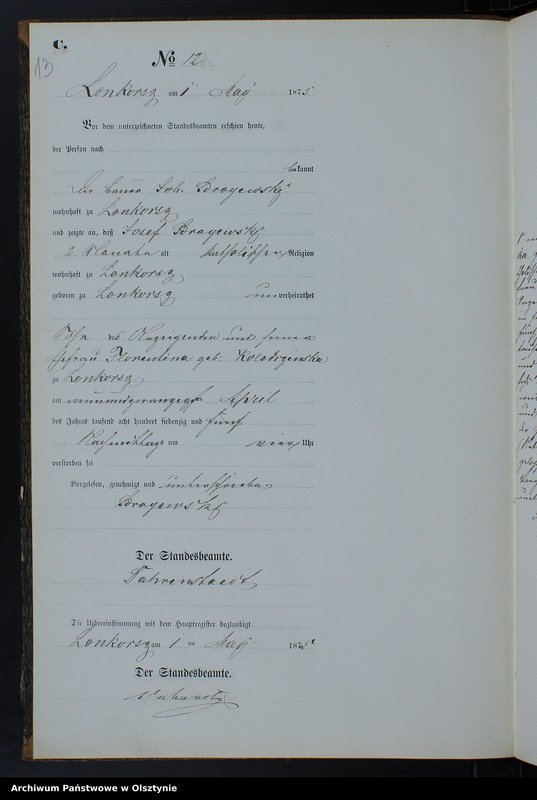 C.
13
No 12.
Lonkorsz am 1 May 1875
Vor dem unterzeichneten Standesbeamten erschien heute,
der Person nach
bekannt
Der Bauer Joh.
wohnhaft zu Lonkorsz
und zeigte an, daß Josef
2 Monate alt katholischer Religion
wohnhaft zu Lonkorsz
geboren zu Lonkorsz unverheirathet
Sohn des Anzeigenden und seiner
Ehefrau Florentina geb:
zu Lonkorsz
am neunundzwanzigsten April
des Jahres tausend acht hundert siebenzig und fünf
Nachmittags um vier Uhr
verstorben sei
Vorgelesen, genehmigt und unterschrieben
Der Standesbeamte.
Die Uebereinstimmung mit dem Hauptregister beglaubigt
Lonkorsz am 1 ten May 1875
Der Standesbeamte.
Archiwum Państwowe w Olsztynie